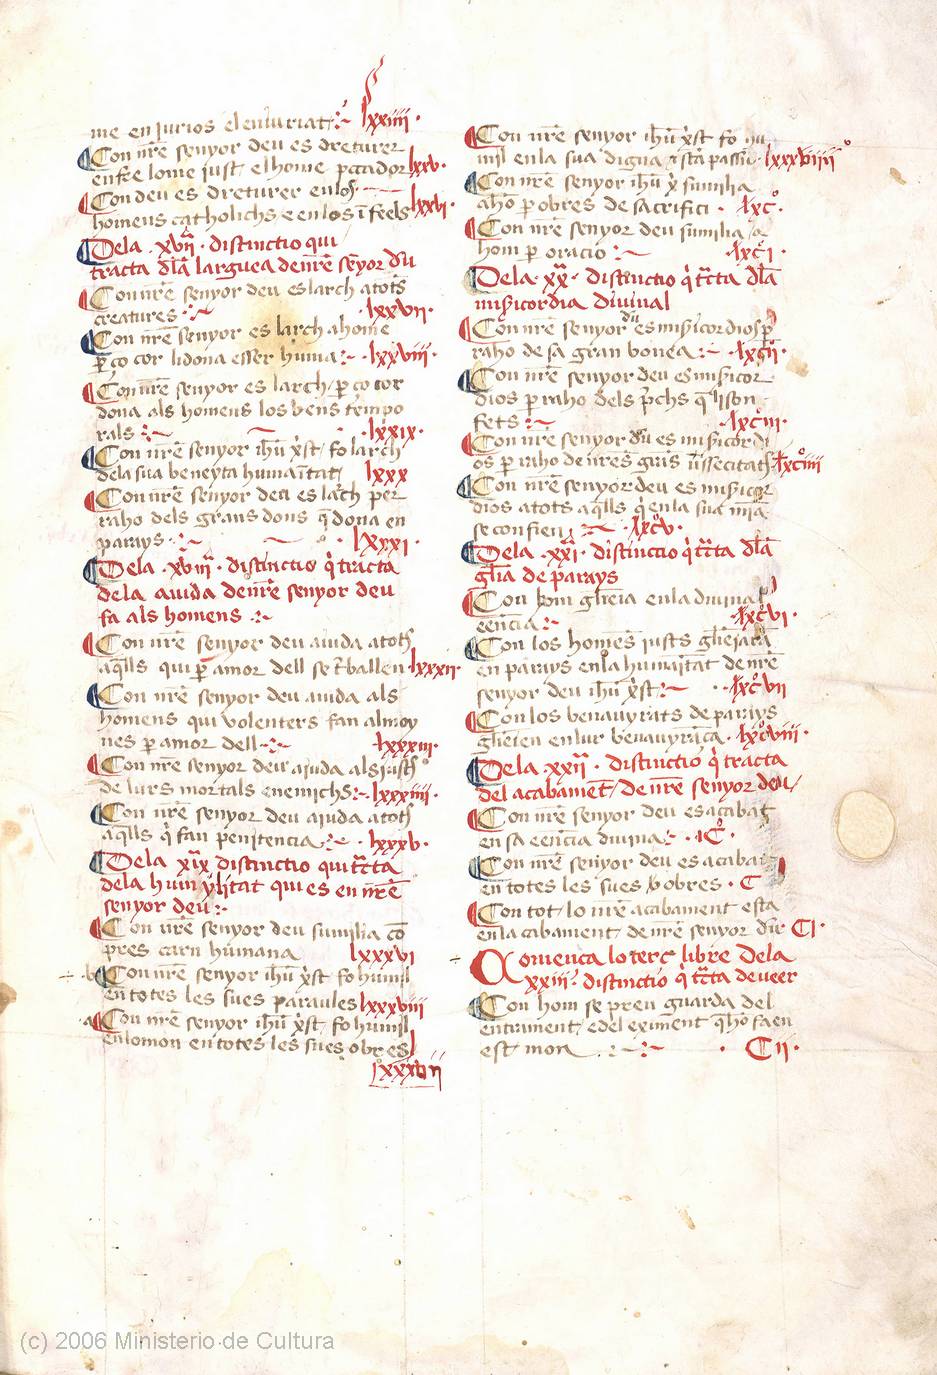 me en iurios el enuariat lxxiiii
Con nr̄e senyor deu es dreturer
enfre lome just el home pecador lxxv
Con deu es dreturer en los
homens catholichs e en los īfeels lxxvi
Dela xvii distinctio qui
tracta dla larguea de nr̄e senyor du
Con nr̄e senyor deu es larch a tots
creatures lxxvii
Con nr̄e senyor es larch a home
p̱ ço cor li dona esser huma lxxviii
Con nr̄e senyor es larch p̱ ço cor
dona als homens los bens tempo
rals lxxix
Con nr̄e senyor ih̄u xp̄st fo larch
dela sua beneyta humaītat lxxx
Con nr̄e senyor deu es larch per
raho dels grans dons q̄ dona en
parays lxxxi
Dela xviii distinctio q̇ tracta
de la aiuda de nr̄e senyor deu
fa als homens
Con nr̄e senyor deu aiuda a tots
aq̄lls qui p̱ amor dell se tballen lxxxii
Con nr̄e senyor deu aiuda als
homens qui volenters fan almoy
nes p̱ amor dell lxxxiii
Con nr̄e senyor deu ajuda als justs
de lurs mortals enemichs lxxxiiii
Con nr̄e senyor deu ajuda a tots
aq̄lls q̇ fan penitencia lxxxv
Dela xix distinctio qui tc̄ta
dela humylitat qui es en nr̄e
senyor deu
Con nr̄e senyor deu sumilia co
pres carn humana lxxxvi
b Con nr̄e senyor ih̄u xp̄st fo humil
en totes les sues paraules lxxxviii
a Con nr̄e senyor ih̄u xp̄st fo humil
en lo mon en totes les sues obres
lxxxvii
Con nr̄e senyor ih̄u xp̄st fo hu
mil en la sua digna e sta passio lxxxviiii
Con nr̄e senyor ih̄u xp̄ sumilia
a ho p̱ obres de sacrifici lxc
Con nr̄e senyor deu sumilia a
hom p̱ oracio lxci
Dela xx distinctio q̇ tc̄ta dla
misericordia divinal
Con nr̄e senyor du es misericordios p̱
raho de sa gran bonea lxcii
Con nr̄e senyor deu es misericor
dios p̱ raho dels pchs q̄ li son
fets lxciii
Con nr̄e senyor du es misericordi
os p̱ raho de nr̄es grans nssecitats lxciiii
Con nr̄e senyor deu es misericor
dios a tots aq̄lls q̇ en la sua mīa
se confien lxcv
Dela xxi distinctio q̇ tc̄ta dla
glīa de parays
Con hom glīeia en la divinal
eencia lxcvi
Con los homens justs glīejara
en parays en la humaītat de nr̄e
senyor deu ih̄u xp̄st lxcvii
Con los benauyrats de parays
glieien en lur benauyrāca lxcviii
Dela xxii distinctio q̇ tracta
del acabamēt de nr̄e senyor deu
Con nr̄e senyor deu es acabat
en sa eencia divina ic
Con nr̄e senyor deu es acabat
en totes les sues obres C
Con tot lo nr̄e acabament esta
en lacabament de nr̄e senyor dīr CI
Comença lo terç libre dela
xxiii distinctio q̇ tc̄ta de veer
Con hom se pren guarda del
entrament e del eximent q̄ ho fa en
est mon CII
(c) 2006 Ministerio de Cultura